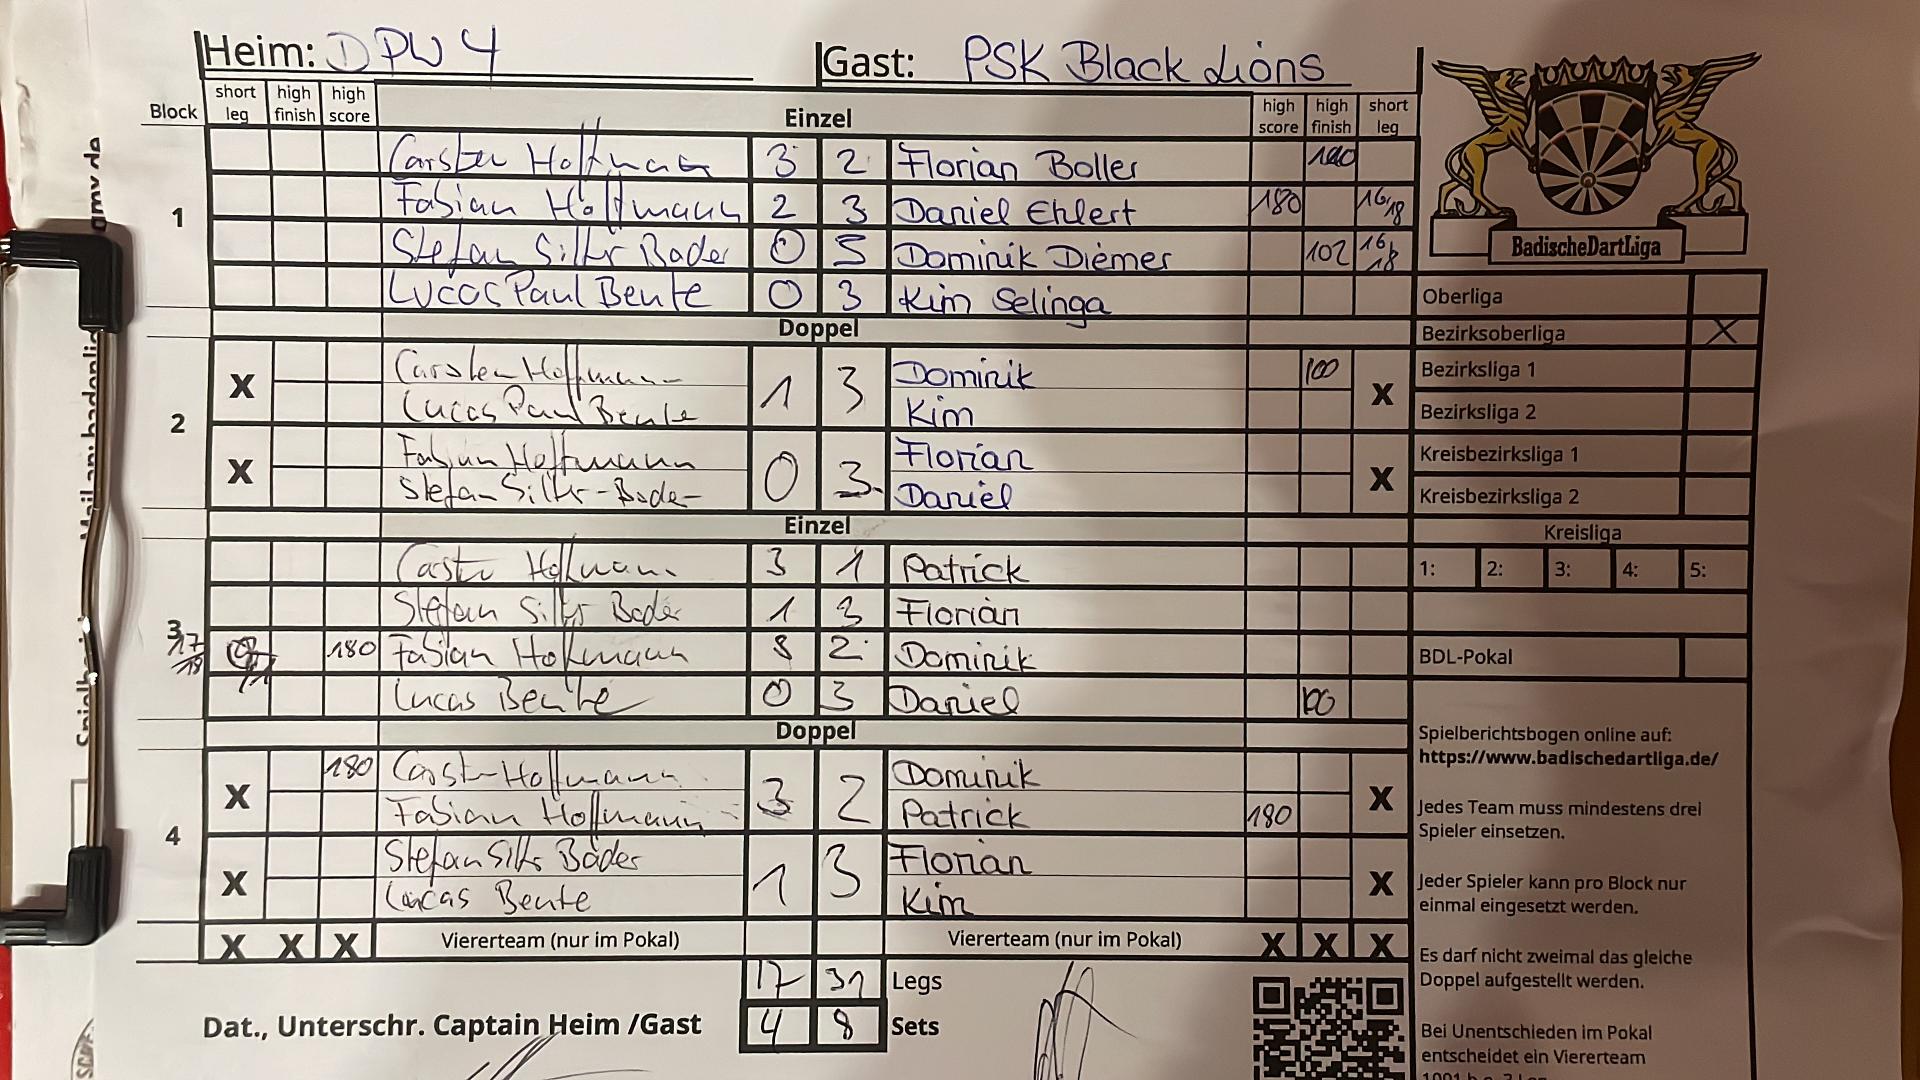 Heim: DPW 4 Gast: PSK Black Lions
Block short leg high finish high score Einzel high score high finish short leg
1
Carsten Hoffmann 3 2 Florian Boller 140
Fabian Hoffmann 2 3 Daniel Ehlert 180 16/18
Stefan Silks Bader 0 3 Dominik Diemer 102 16/18
Lucas Paul Beute 0 3 Kim Selinga
Doppel
2
X Carsten Hoffmann 1 3 Dominik 100 X
Lucas Paul Beute Kim
X Fabian Hoffmann 0 3 Florian X
Stefan Silks-Bader Daniel
Einzel
3
Carsten Hoffmann 3 1 Patrick
Stefan Silks Bader 1 3 Florian
17/18 180 Fabian Hoffmann 3 2 Dominik
Lucas Beute 0 3 Daniel 100
Doppel
4
X 180 Carsten Hoffmann 3 2 Dominik X
Fabian Hoffmann Patrick 180
X Stefan Silks Bader 1 3 Florian X
Lucas Beute Kim
X X X Viererteam (nur im Pokal) Viererteam (nur im Pokal) X X X
17 31 Legs
Dat., Unterschr. Captain Heim /Gast 4 8 Sets
BadischeDartLiga
Oberliga
Bezirksoberliga X
Bezirksliga 1
Bezirksliga 2
Kreisbezirksliga 1
Kreisbezirksliga 2
Kreisliga
1: 2: 3: 4: 5:
BDL-Pokal
Spielberichtsbogen online auf:
https://www.badischedartliga.de/
Jedes Team muss mindestens drei
Spieler einsetzen.
Jeder Spieler kann pro Block nur
einmal eingesetzt werden.
Es darf nicht zweimal das gleiche
Doppel aufgestellt werden.
Bei Unentschieden im Pokal
entscheidet ein Viererteam